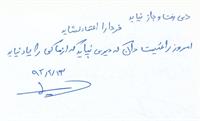 دی رفت و باز نیاید
فردا را اعتماد نشاید
امروز را غنیمت دان که دیری نپاید که از ما کسی را یاد نیاید
۹۲/۷/۱۳